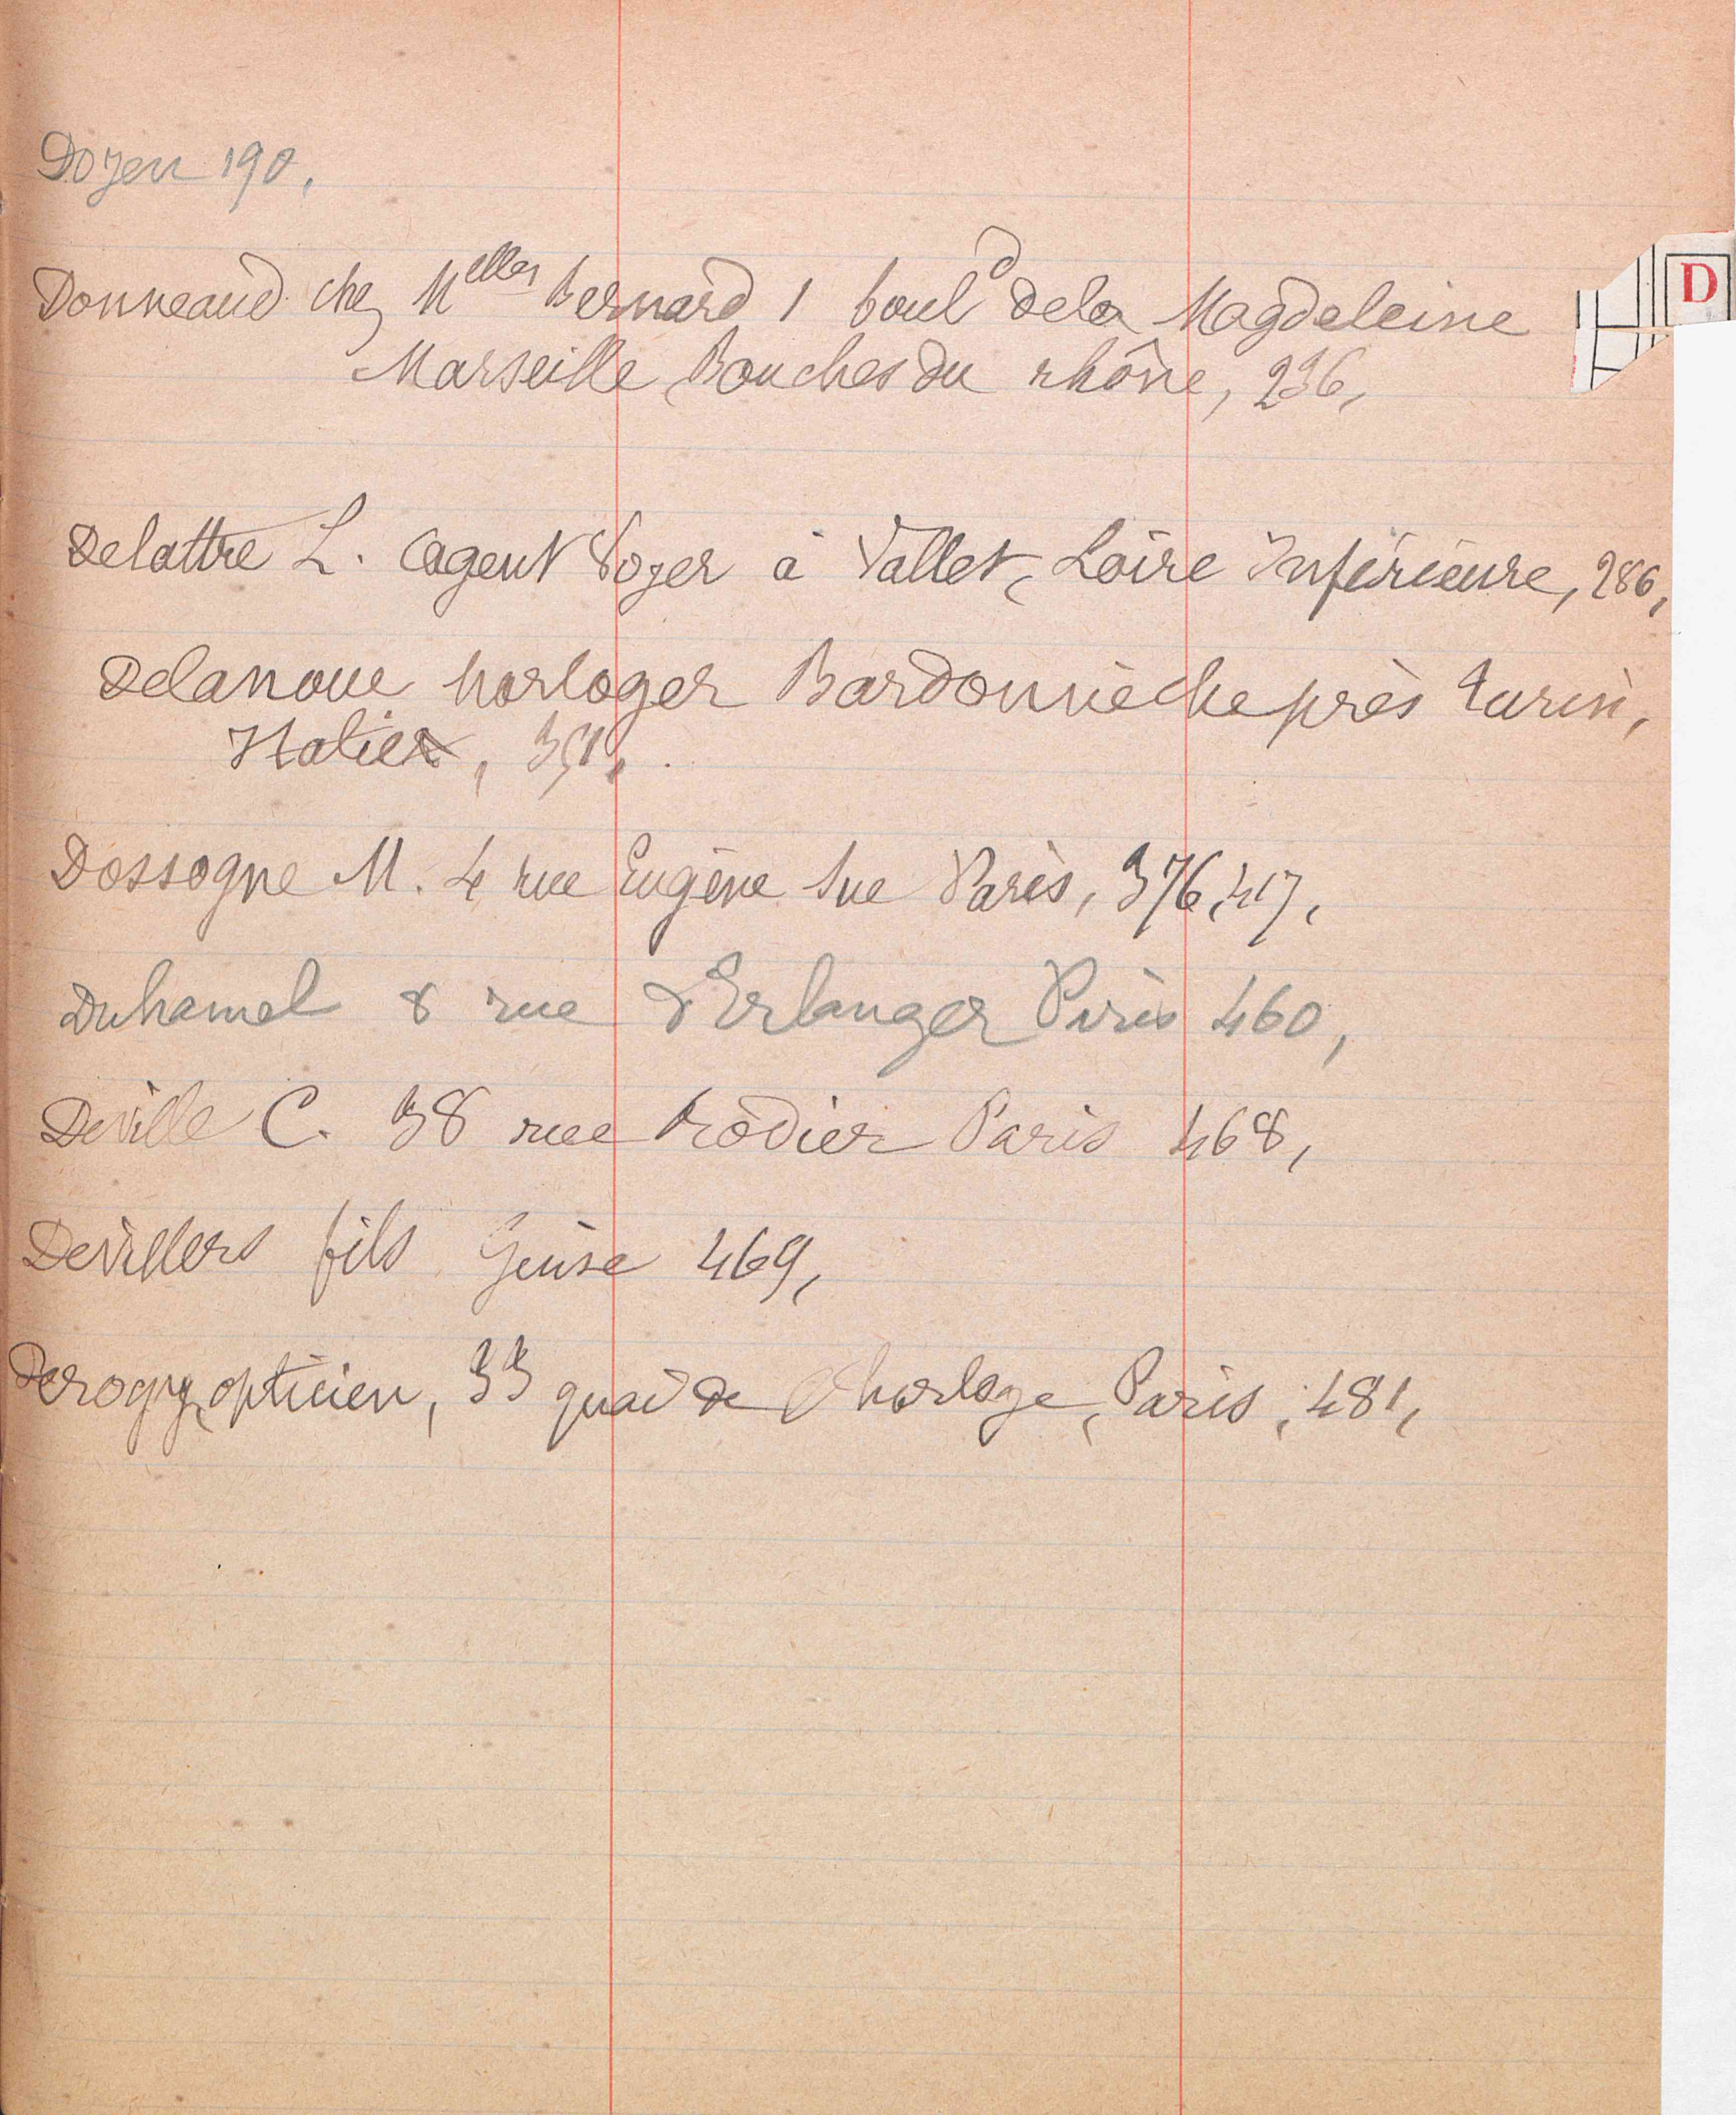 Doyen 190,
D
Donneaud chez Melles Bernard 1 bould de la Magdeleine
Marseille, Bouches du rhône, 236,
Delattre L. Agent Voyer à Vallet, Loire Inférieure, 286,
Delanoue horloger Bardonnèche près turin,
Italie,
Dossogne M. 4 rue Eugène Sue Paris, 376, 417,
Duhamel 8 rue d'Erlanger Paris 460,
Deville C. 38 rue rodier Paris 468,
Devillers fils Guise 469,
Derogy, opticien, 33 quai de l'horloge, Paris, 481,